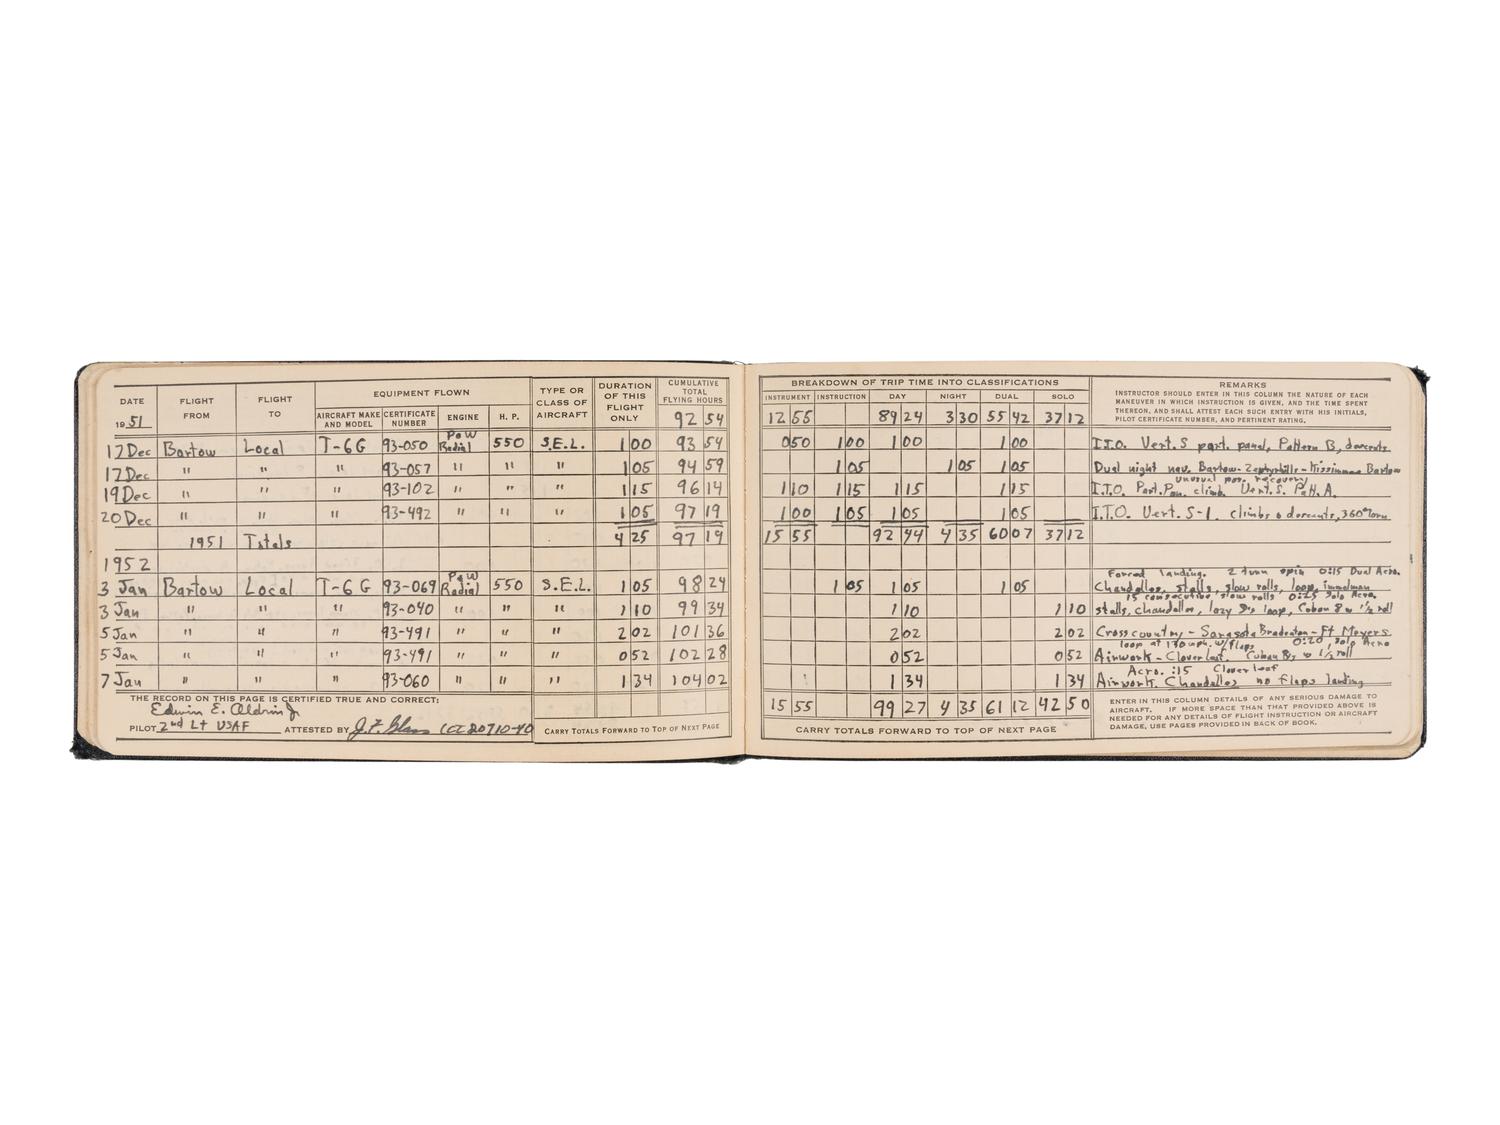 DATE FLIGHT FROM FLIGHT TO EQUIPMENT FLOWN TYPE OR CLASS OF AIRCRAFT DURATION OF THIS FLIGHT ONLY CUMULATIVE TOTAL FLYING HOURS
1951 AIRCRAFT MAKE AND MODEL CERTIFICATE NUMBER ENGINE H. P. 92 54
17 Dec Bartow Local T-6G 93-050 P&W Radial 550 S.E.L. 1 00 93 54
17 Dec " " " 93-057 " " " 1 05 94 59
19 Dec " " " 93-102 " " " 1 15 96 14
20 Dec " " " 93-492 " " " 1 05 97 19
1951 Totals 4 25 97 19
1952
3 Jan Bartow Local T-6G 93-069 P&W Radial 550 S.E.L. 1 05 98 24
3 Jan " " " 93-040 " " " 1 10 99 34
5 Jan " " " 93-491 " " " 2 02 101 36
5 Jan " " " 93-491 " " " 0 52 102 28
7 Jan " " " 93-060 " " " 1 34 104 02
THE RECORD ON THIS PAGE IS CERTIFIED TRUE AND CORRECT:
Edwin E. Aldrin Jr
PILOT 2nd Lt USAF ATTESTED BY J.F. 20710-40 CARRY TOTALS FORWARD TO TOP OF NEXT PAGE
BREAKDOWN OF TRIP TIME INTO CLASSIFICATIONS
INSTRUMENT INSTRUCTION DAY NIGHT DUAL SOLO
12 55 89 24 3 30 55 42 37 12
REMARKS
INSTRUCTOR SHOULD ENTER IN THIS COLUMN THE NATURE OF EACH
MANEUVER IN WHICH INSTRUCTION IS GIVEN, AND THE TIME SPENT
THEREON, AND SHALL ATTEST EACH SUCH ENTRY WITH HIS INITIALS,
PILOT CERTIFICATE NUMBER, AND PERTINENT RATING.
0 50 1 00 1 00 1 00 I.T.O. Vert. S part. panel, Pattern B, descents
1 05 1 05 1 05 Dual night nav. Bartow-Zephyrhills-Kissimmee Bartow
unusual pos. recovery
1 10 1 15 1 15 1 15 I.T.O. Part. Pan. climb Vert. S. Patt. A.
1 00 1 05 1 05 1 05 I.T.O. Vert. S-1 climbs & descents, 360° turn
15 55 92 44 4 35 60 07 37 12
Forced landing. 2 turn spin 0:15 Dual Acro.
1 05 1 05 1 05 Chandelles, stalls, slow rolls, loop, immelman
15 consecutive slow rolls 0:25 Solo Acro.
1 10 1 10 stalls, chandelles, lazy 8's loop, Cuban 8 w 1½ roll
2 02 2 02 Cross country - Sarasota Bradenton - Ft Meyers
loop at 130 mph. w/flaps 0:20 solo Acro
0 52 0 52 Airwork - Cloverleaf. Cuban 8's w 1½ roll
Acro. :15 Cloverleaf
1 34 1 34 Airwork. Chandelles no flaps landing
15 55 99 27 4 35 61 12 42 50
CARRY TOTALS FORWARD TO TOP OF NEXT PAGE
ENTER IN THIS COLUMN DETAILS OF ANY SERIOUS DAMAGE TO
AIRCRAFT. IF MORE SPACE THAN THAT PROVIDED ABOVE IS
NEEDED FOR ANY DETAILS OF FLIGHT INSTRUCTION OR AIRCRAFT
DAMAGE, USE PAGES PROVIDED IN BACK OF BOOK.